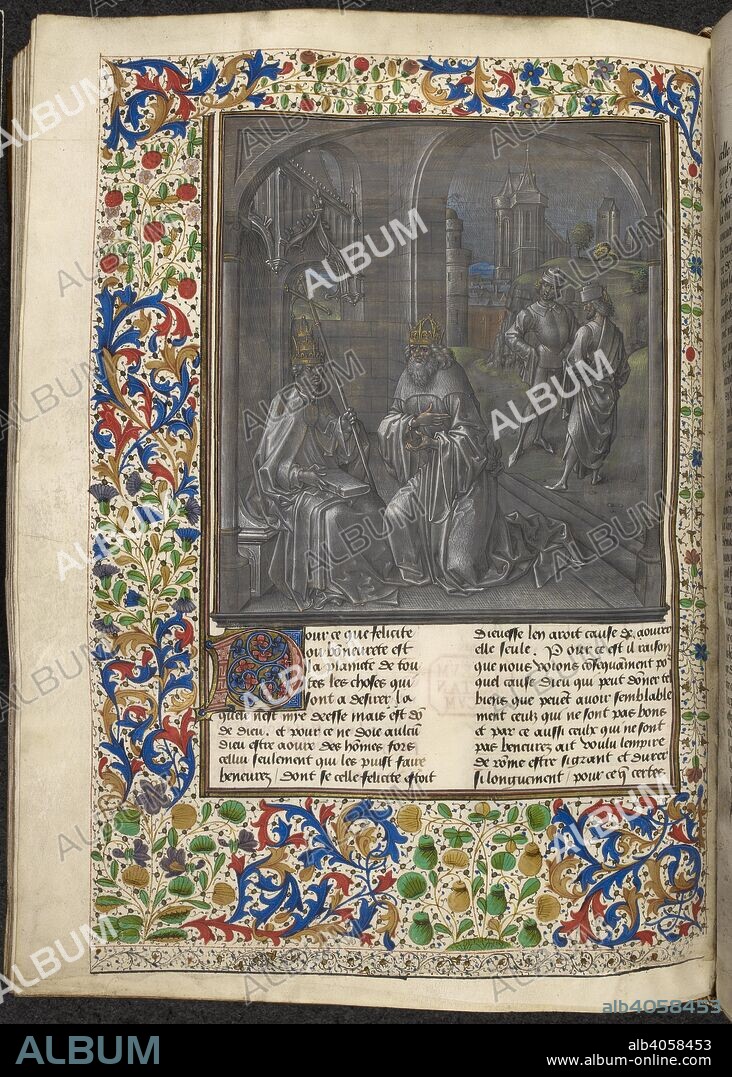 Pour ce que felicite
ou boneurete est
la planiete de tou
tes les choses qui
sont a desirer la
quele nest mye deesse mais est dõ
de dieu. et pour ce ne doie aulcũ
dieu estre aoure des hõmes fors
cellui seulement qui les puist faire
beneurez / dont se celle felicite estoit
dieusse len aroit cause de aourer
elle seule. Pource est il raison
que nous voions cõsequãment po
quel cause dieu qui peut dõner telz
biens que peuẽt avoir semblable
ment ceulx qui ne sont pas bons
et par ce aussi ceulx qui ne sont
pas beneurez ait voulu lempire
de rõme estre si grant et durer
si longuement / pour ce q̃ certes
ALBUM
alb4058453
ALBUM
alb4058453
www.album-online.com